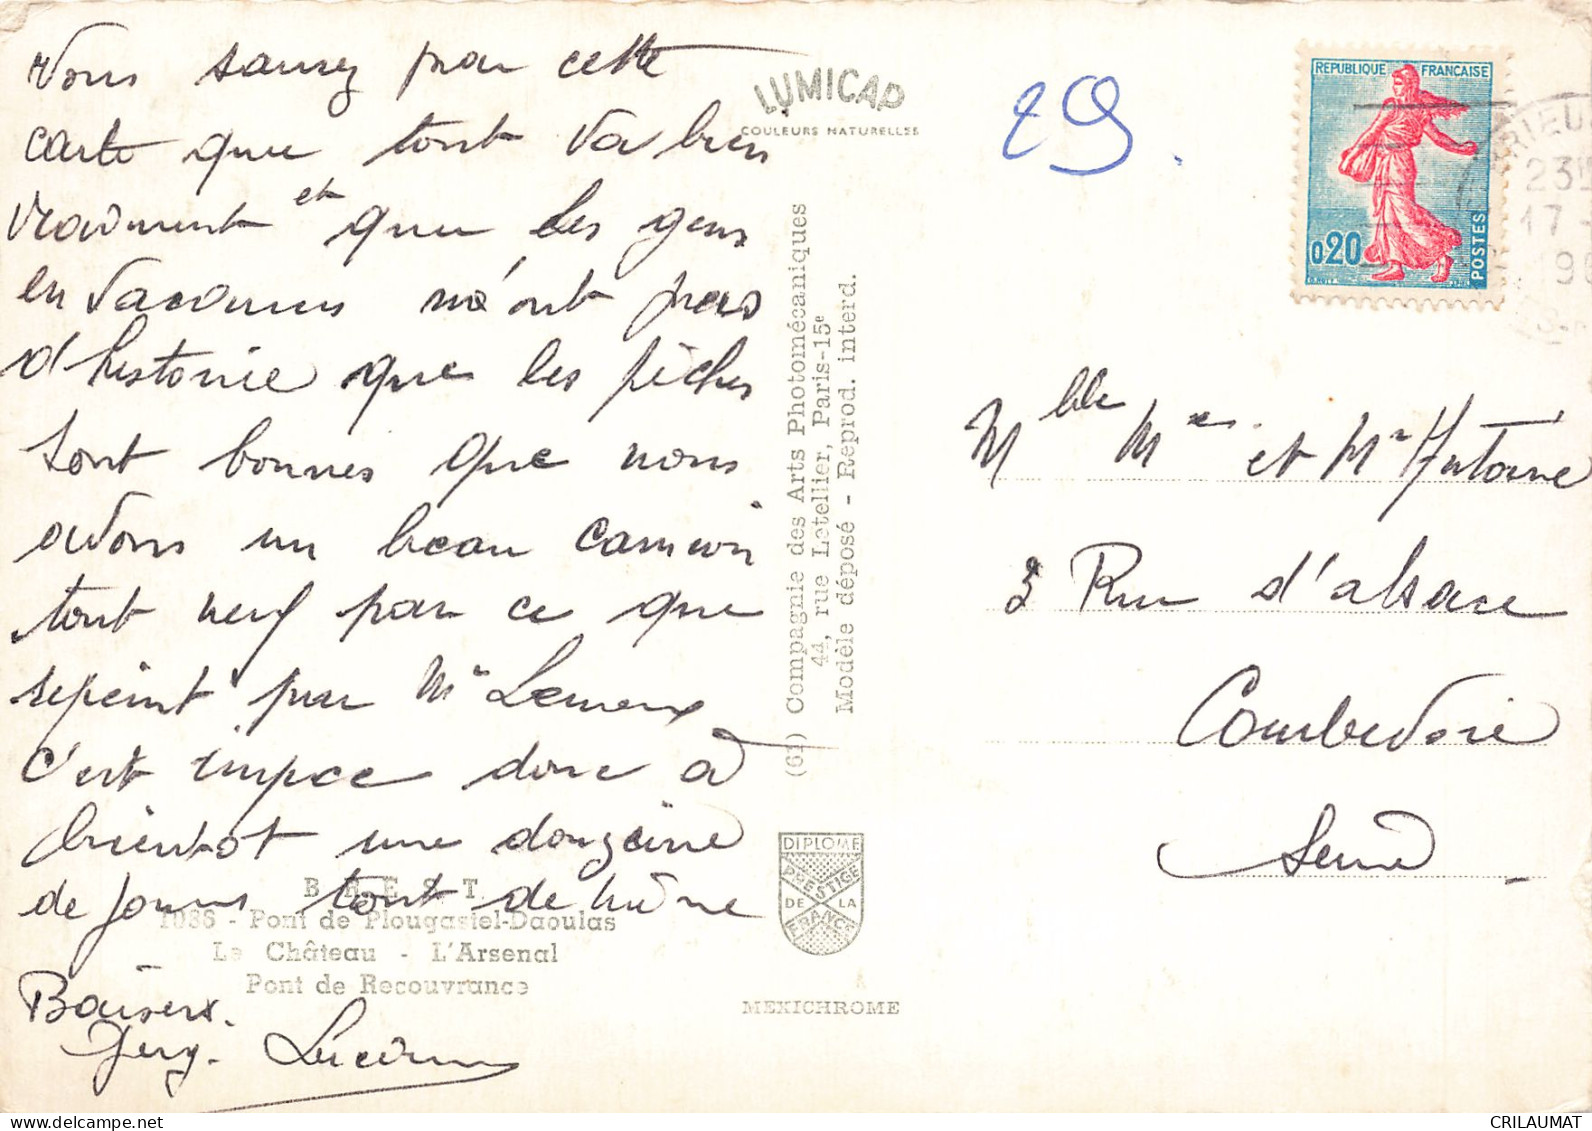 Vous saurez par cette
carte que tout va bien
vraiment et que les gens
en vacances n'ont pas
d'histoire que les pêches
sont bonnes que nous
avons un beau camion
tout neuf par ce que
repeint par Mr Lemeux
c'est impec donc à
bientôt une douzaine
de jours tout de même
Baisers.
Lucienne
LUMICAP
COULEURS NATURELLES
29.
REPUBLIQUE FRANÇAISE
0,20
POSTES
BRIEU
23H
17 -
196
(61) Compagnie des Arts Photomécaniques
44, rue Letellier, Paris-15e
Modèle déposé - Reprod. interd.
Mlle Mme et Mr Antoine
3 Rue d'alsace
Courbevoie
Seine
DIPLOME
PRESTIGE
DE LA
FRANCE
MEXICHROME
BREST
1086 - Pont de Plougastel-Daoulas
Le Château - L'Arsenal
Pont de Recouvrance
CRILAUMAT